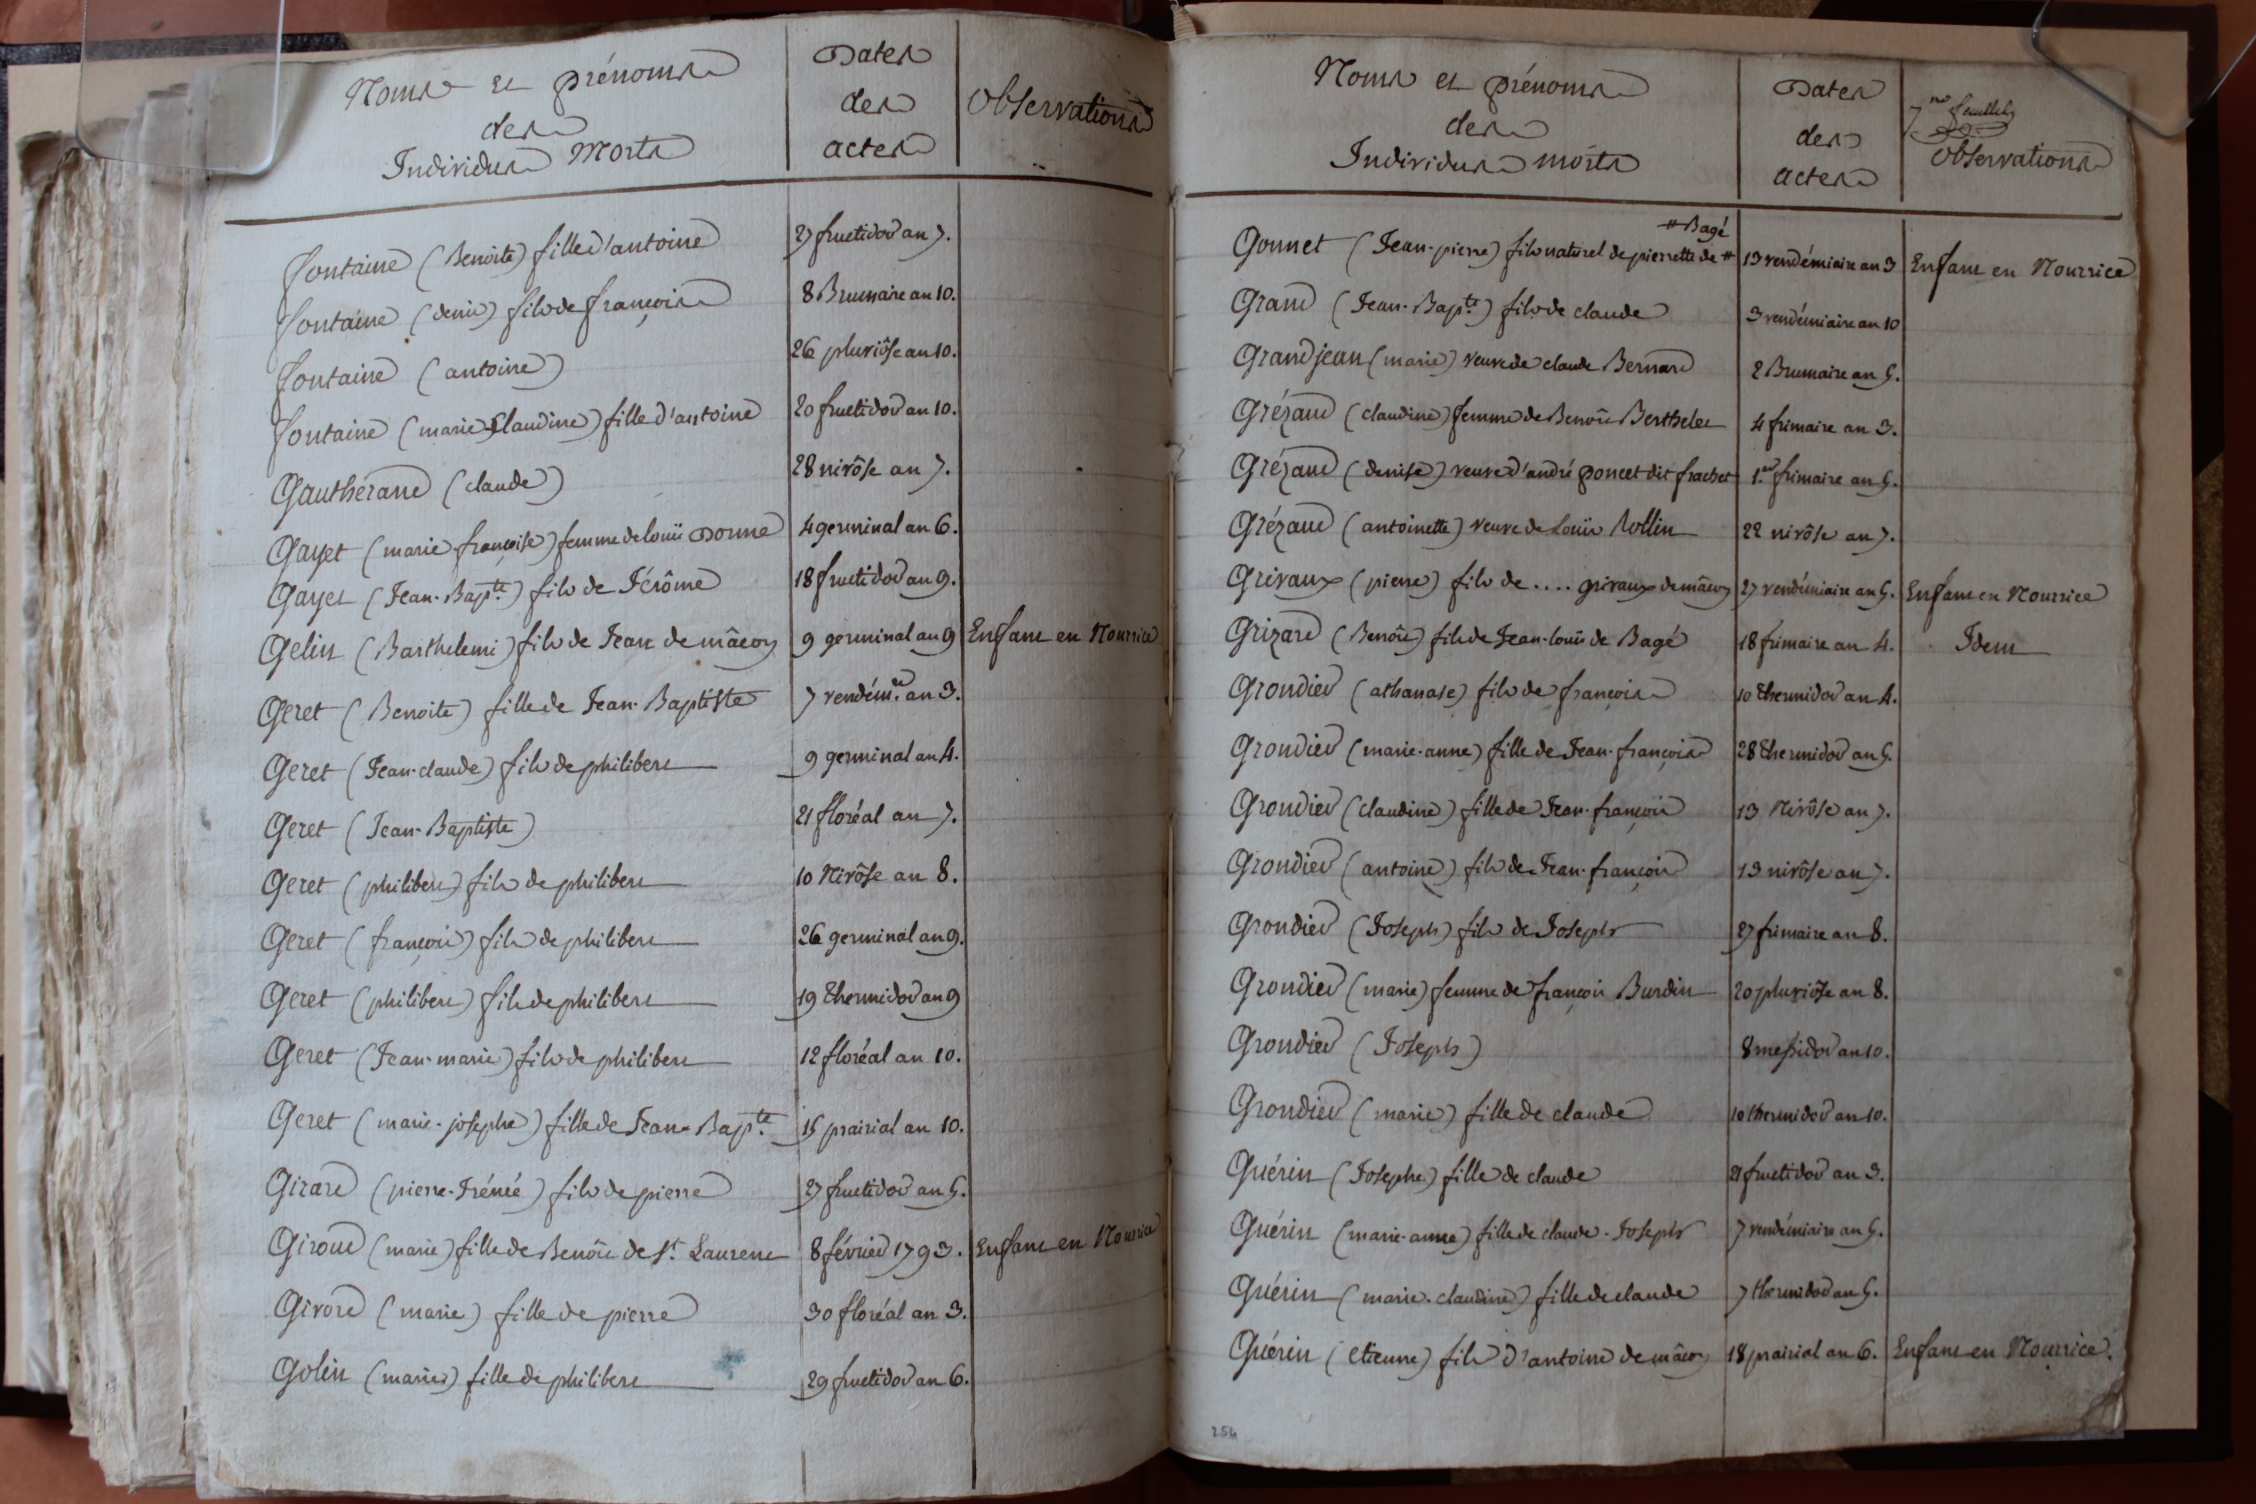 Noms et prénoms
des
Individus Morts
Dates
des
actes
Observations
fontaine (Benoite) fille d'antoine 27 fructidor an 7.
fontaine (denis) fils de françois 8 Brumaire an 10.
fontaine (antoine) 26 pluviôse an 10.
fontaine (marie Claudine) fille d'antoine 20 fructidor an 10.
Gauthérand (claude) 28 nivôse an 7.
Gayet (marie françoise) femme de louis Donne 4 germinal an 6.
Gayet (Jean-Bapte.) fils de Jérôme 18 fructidor an 9.
Gelin (Barthelemi) fils de Jean de mâcon 9 germinal an 9 Enfant en Nourrice
Geret (Benoite) fille de Jean-Baptiste 7 vendém.re an 3.
Geret (Jean-claude) fils de philibert 9 germinal an 4.
Geret (Jean-Baptiste) 21 floréal an 7.
Geret (philibert) fils de philibert 10 Nivôse an 8.
Geret (françois) fils de philibert 26 germinal an 9.
Geret (philibert) fils de philibert 19 thermidor an 9
Geret (Jean-marie) fils de philibert 12 floréal an 10.
Geret (marie-josephe) fille de Jean-Bapte. 15 prairial an 10.
Girard (pierre-Irénée) fils de pierre 27 fructidor an 5.
Giroud (marie) fille de Benôit de St. Laurent 8 février 1793. Enfant en Nourrice
Givord (marie) fille de pierre 30 floréal an 3.
Golin (marie) fille de philibert 29 fructidor an 6.
Noms et prénoms
des
Individus morts
Dates
des
actes
7me feuillet
Observations
# Bagé
Gonnet (Jean-pierre) fils naturel de pierrette de # 13 vendémiaire an 3 Enfant en Nourrice
Grand (Jean-Bapte.) fils de claude 3 vendémiaire an 10
Grandjean (marie) veuve de claude Bernard 2 Brumaire an 5.
Grézaud (claudine) femme de Benoît Berthelet 4 frimaire an 3.
Grézaud (denise) veuve d'andré poncet dit frachet 1.er frimaire an 5.
Grézaud (antoinette) veuve de Louis Rollin 22 nivôse an 7.
Grivaux (pierre) fils de .... grivaux de mâcon 27 vendémiaire an 5. Enfant en Nourrice
Grizard (Benôit) fils de Jean-louis de Bagé 18 frimaire an 4. Idem
Grondier (athanase) fils de françois 10 thermidor an 4.
Grondier (marie-anne) fille de Jean-françois 28 thermidor an 5.
Grondier (claudine) fille de Jean-françois 13 Nivôse an 7.
Grondier (antoine) fils de Jean-françois 13 nivôse an 7.
Grondier (Joseph) fils de Joseph 27 frimaire an 8.
Grondier (marie) femme de françois Burdin 20 pluviôse an 8.
Grondier (Joseph) 8 messidor an 10.
Grondier (marie) fille de claude 10 thermidor an 10.
Guérin (Josephe) fille de claude 21 fructidor an 3.
Guérin (marie-anne) fille de claude-Joseph 7 vendémiaire an 5.
Guérin (marie-claudine) fille de claude 7 thermidor an 5.
Guérin (etienne) fils d'antoine de mâcon 18 prairial an 6. Enfant en Nourrice.
254